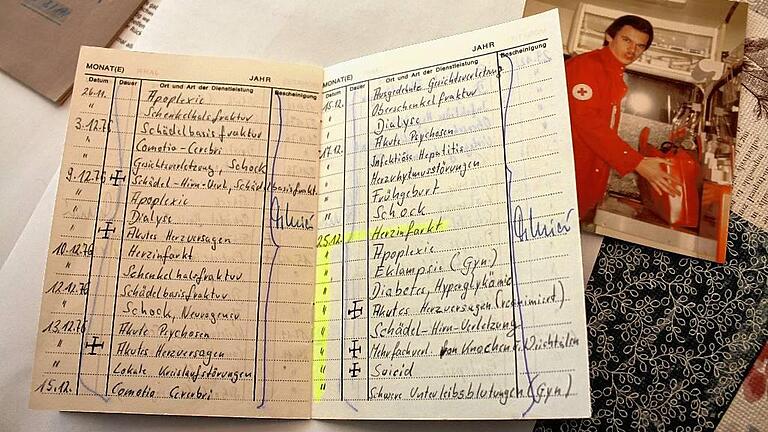 MONAT(E) JAHR
Datum Dauer Ort und Art der Dienstleistung Bescheinigung
26.11. Apoplexie
" Schenkelhalsfraktur
3.12.76 Schädelbasisfraktur
" Comotio-Cerebri
" Gesichtsverletzung, Schock
9.12.76 Schädel-Hirn-Verl., Schädelbasisfraktur
" Apoplexie
" Dialyse
" Akutes Herzversagen
10.12.76 Herzinfarkt
" Schenkelhalsfraktur
12.12.76 Schädelbasisfraktur
" Schock, Neurogener
13.12.76 Akute Psychosen
" Akutes Herzversagen
" Lokale Kreislaufstörungen
15.12. Comotio Cerebri
MONAT(E) JAHR
Datum Dauer Ort und Art der Dienstleistung Bescheinigung
15.12. Ausgedehnte Gesichtsverletzung
" Oberschenkelfraktur
" Dialyse
" Akute Psychosen
17.12. Infektiöse Hepatitis
" Herzrhythmusstörungen
" Frühgeburt
" Schock
25.12. Herzinfarkt
" Apoplexie
" Eklampsie (Gyn.)
" Diabetes, Hyperglykämie
" Akutes Herzversagen (reanimiert)
" Schädel-Hirn-Verletzung
" Mehrfachverl. von Knochen u. Weichteilen
" Suicid
" Schwere Unterleibsblutungen (Gyn.)